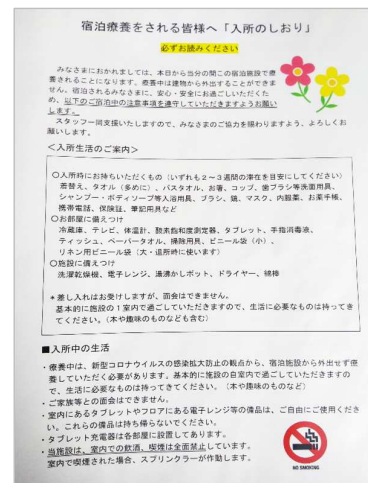 宿泊療養をされる皆様へ「入所のしおり」
必ずお読みください
みなさまにおかれましては、本日から当分の間この宿泊施設で療
養されることになります。療養中は建物から外出することができま
せん。宿泊されるみなさまに、安心・安全にお過ごしいただくた
め、以下のご宿泊中の注意事項を遵守していただきますようお願い
します。
スタッフ一同支援いたしますので、みなさまのご協力を賜わりますよう、よろしくお
願いします。
<入所生活のご案内>
○入所時にお持ちいただくもの(いずれも2~3週間の滞在を目安にしてください)
着替え、タオル(多めに)、バスタオル、お箸、コップ、歯ブラシ等洗面用具、
シャンプー・ボディソープ等入浴用具、ブラシ、鏡、マスク、内服薬、お薬手帳、
携帯電話、保険証、筆記用具など
○お部屋に備えつけ
冷蔵庫、テレビ、体温計、酸素飽和度測定器、タブレット、手指消毒液、
ティッシュ、ペーパータオル、掃除用具、ビニール袋(小)、
リネン用ビニール袋(大・退所時に使います)
○施設に備えつけ
洗濯乾燥機、電子レンジ、湯沸かしポット、ドライヤー、綿棒
*差し入れはお受けしますが、面会はできません。
基本的に施設の1室内で過ごしていただきますので、生活に必要なものは持ってき
てください。(本や趣味のものなども含む)
■入所中の生活
・療養中は、新型コロナウイルスの感染拡大防止の観点から、宿泊施設から外出せず療
養していただく必要があります。基本的に施設の自室内で過ごしていただきますの
で、生活に必要なものは持ってきてください。(本や趣味のものなど)
・ご家族等との面会はできません。
・室内にあるタブレットやフロアにある電子レンジ等の備品は、ご自由にご使用くださ
い。これらの備品は持ち帰らないでください。
・タブレット充電器は各部屋に設置してあります。
・当施設は、室内での飲酒、喫煙は全面禁止しています。
室内で喫煙された場合、スプリンクラーが作動します。
NO SMOKING